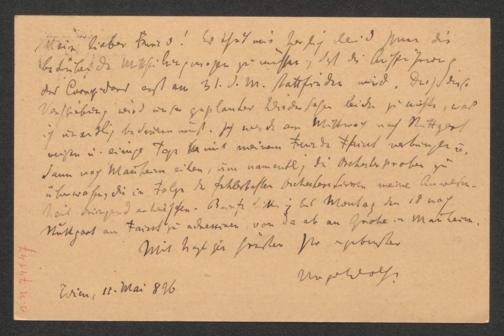 Mein lieber Freund! Es thut mir herzlich leid Ihnen die
betrübende Mittheilung machen zu müssen, daß die Aufführung
des Corregidor erst am 31. d. M. stattfinden wird. Durch diese
Verschiebung wird unser geplantes Wiedersehen leider zu nichte, was
ich unendlich bedauern muß. Ich werde am Mittwoch nach Stuttgart
reisen u. einige Tage mit meinem Freunde Faisst verbringen u.
dann nach Manheim eilen, um namentlich die Orchesterproben zu
überwachen, die in Folge der fehlerhaften Orchesterstimmen meine Anwesen-
heit dringend erheischen. Briefe bitte ich bis Montag den 18 nach
Stuttgart an Faisst zu adressiren, von da ab an Grohe in Manheim.
Mit herzlichen Grüßen Ihr ergebenster
Hugo Wolf.
Wien, 11. Mai 896